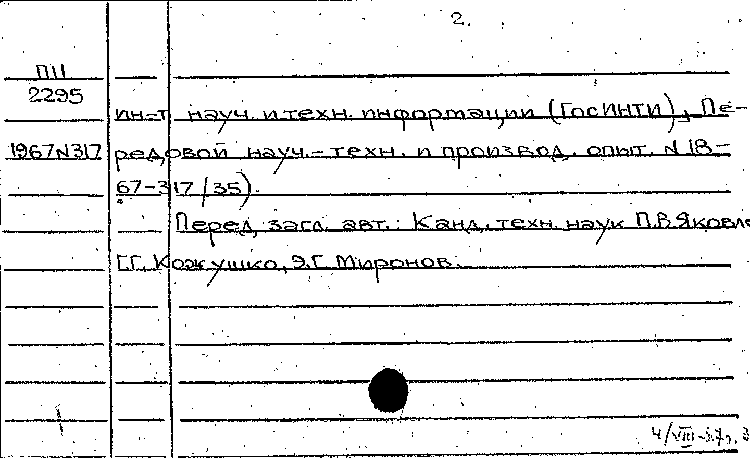 2.
П11
2295
ин-т науч. и техн. информации (ГОСИНТИ), Пе-
1967 N317 редовой науч.-техн. и производ. опыт. N 18-
67-317/35).
Перед загл. авт.: Канд. техн. наук П.В. Яковле
Г.Г. Кожушко, Э.Г. Миронов.